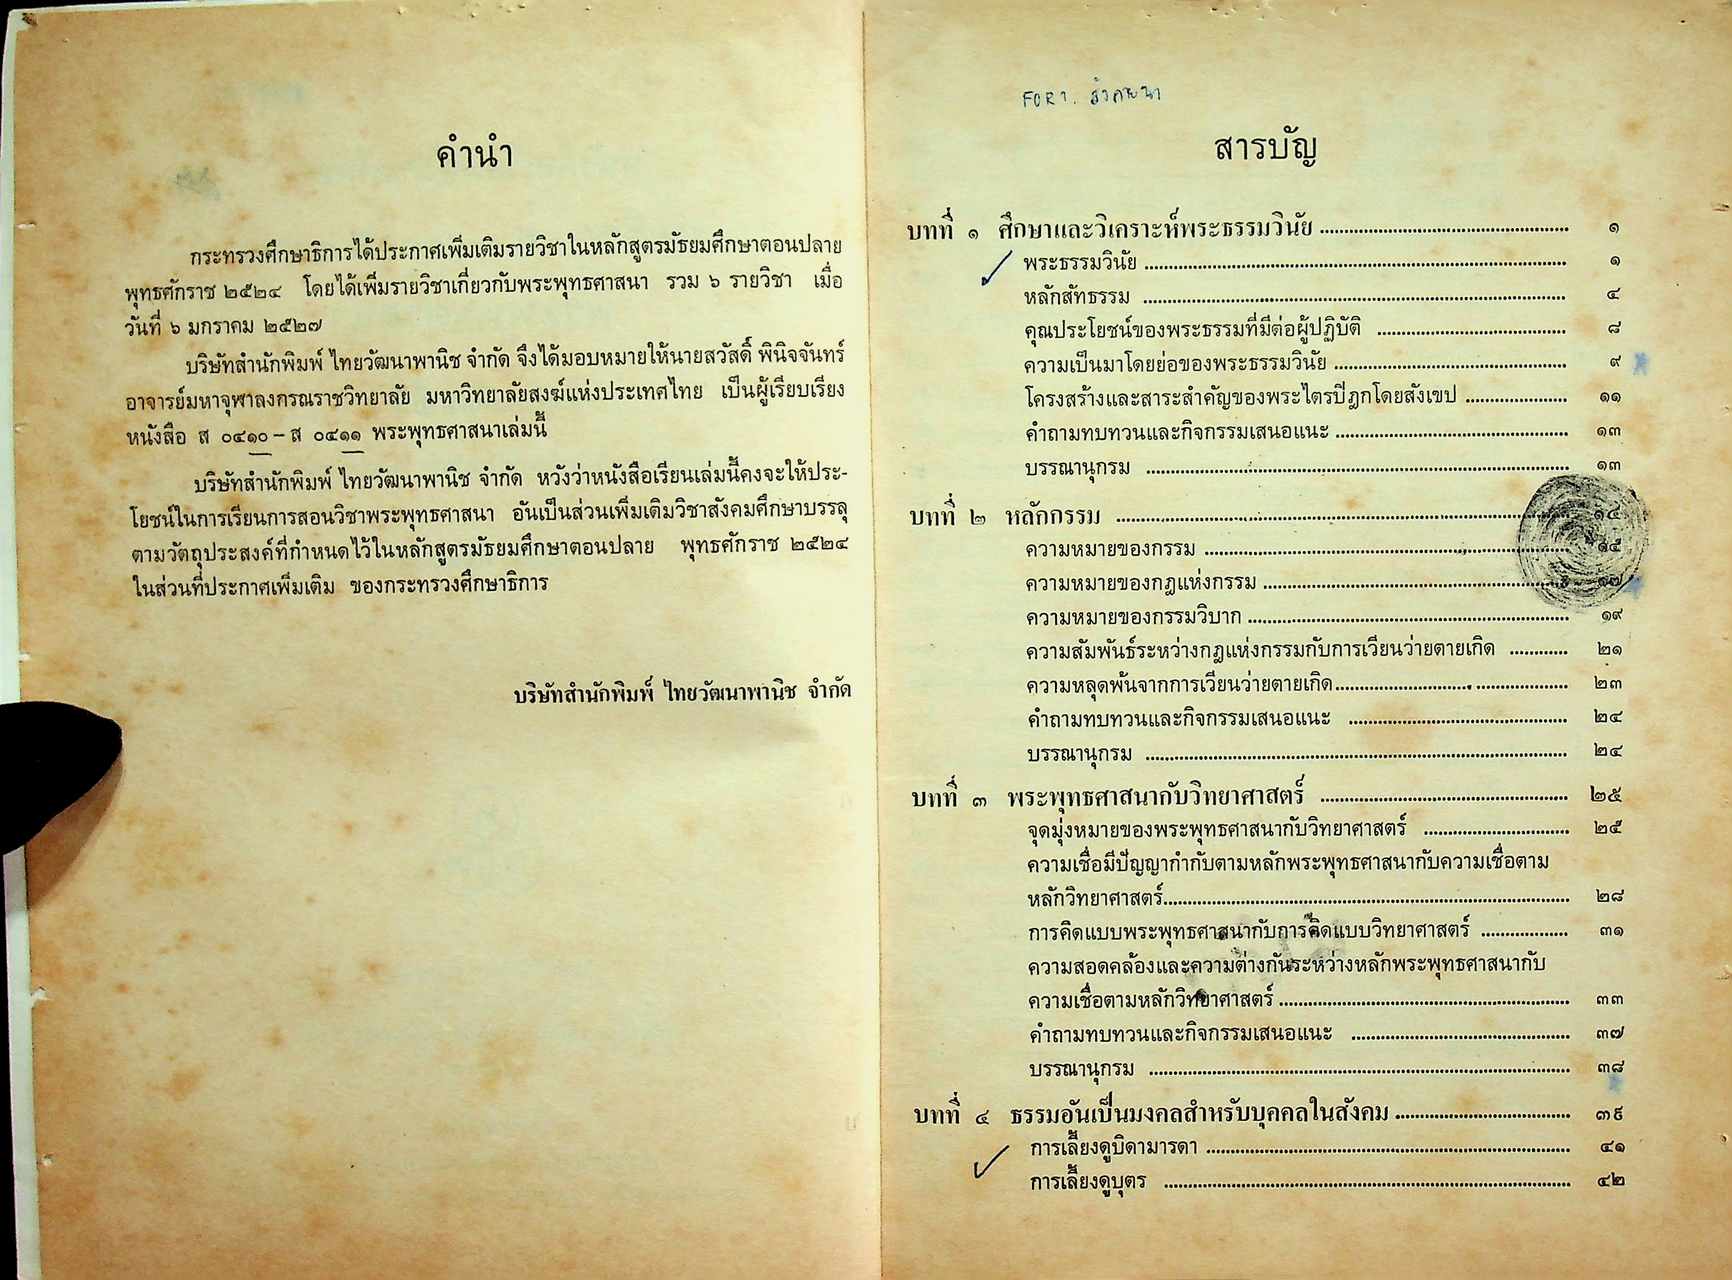 คำนำ
กระทรวงศึกษาธิการได้ประกาศเพิ่มเติมรายวิชาในหลักสูตรมัธยมศึกษาตอนปลาย
พุทธศักราช ๒๕๒๔ โดยได้เพิ่มรายวิชาเกี่ยวกับพระพุทธศาสนา รวม ๖ รายวิชา เมื่อ
วันที่ ๖ มกราคม ๒๕๒๗
บริษัทสำนักพิมพ์ ไทยวัฒนาพานิช จำกัด จึงได้มอบหมายให้นายสวัสดิ์ พินิจจันทร์
อาจารย์มหาจุฬาลงกรณราชวิทยาลัย มหาวิทยาลัยสงฆ์แห่งประเทศไทย เป็นผู้เรียบเรียง
หนังสือ ส ๐๔๑๐ – ส ๐๔๑๑ พระพุทธศาสนาเล่มนี้
บริษัทสำนักพิมพ์ ไทยวัฒนาพานิช จำกัด หวังว่าหนังสือเรียนเล่มนี้คงจะให้ประ-
โยชน์ในการเรียนการสอนวิชาพระพุทธศาสนา อันเป็นส่วนเพิ่มเติมวิชาสังคมศึกษาบรรลุ
ตามวัตถุประสงค์ที่กำหนดไว้ในหลักสูตรมัธยมศึกษาตอนปลาย พุทธศักราช ๒๕๒๔
ในส่วนที่ประกาศเพิ่มเติม ของกระทรวงศึกษาธิการ
บริษัทสำนักพิมพ์ ไทยวัฒนาพานิช จำกัด
สารบัญ
บทที่ ๑ ศึกษาและวิเคราะห์พระธรรมวินัย ๑
พระธรรมวินัย ๑
หลักสัทธรรม ๔
คุณประโยชน์ของพระธรรมที่มีต่อผู้ปฏิบัติ ๘
ความเป็นมาโดยย่อของพระธรรมวินัย ๙
โครงสร้างและสาระสำคัญของพระไตรปิฎกโดยสังเขป ๑๑
คำถามทบทวนและกิจกรรมเสนอแนะ ๑๓
บรรณานุกรม ๑๓
บทที่ ๒ หลักกรรม ๑๔
ความหมายของกรรม ๑๕
ความหมายของกฎแห่งกรรม ๑๗
ความหมายของกรรมวิบาก ๑๙
ความสัมพันธ์ระหว่างกฎแห่งกรรมกับการเวียนว่ายตายเกิด ๒๑
ความหลุดพ้นจากการเวียนว่ายตายเกิด ๒๓
คำถามทบทวนและกิจกรรมเสนอแนะ ๒๔
บรรณานุกรม ๒๔
บทที่ ๓ พระพุทธศาสนากับวิทยาศาสตร์ ๒๕
จุดมุ่งหมายของพระพุทธศาสนากับวิทยาศาสตร์ ๒๕
ความเชื่อมีปัญญากำกับตามหลักพระพุทธศาสนากับความเชื่อตาม
หลักวิทยาศาสตร์ ๒๘
การคิดแบบพระพุทธศาสนากับการคิดแบบวิทยาศาสตร์ ๓๑
ความสอดคล้องและความต่างกันระหว่างหลักพระพุทธศาสนากับ
ความเชื่อตามหลักวิทยาศาสตร์ ๓๓
คำถามทบทวนและกิจกรรมเสนอแนะ ๓๗
บรรณานุกรม ๓๘
บทที่ ๔ ธรรมอันเป็นมงคลสำหรับบุคคลในสังคม ๓๙
การเลี้ยงดูบิดามารดา ๔๑
การเลี้ยงดูบุตร ๔๒